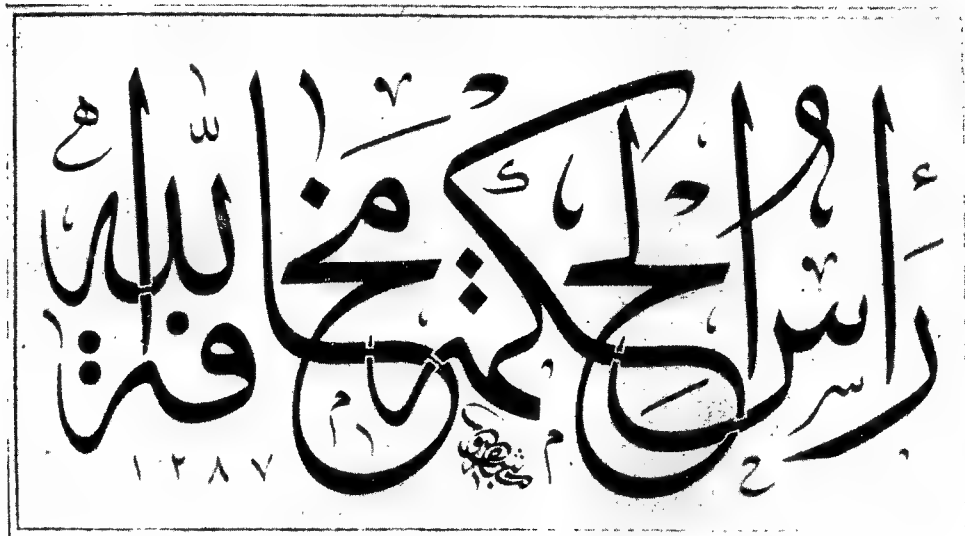 رَأْسُ الْحِكْمَةِ مَخَافَةُ اللّٰهِ
١٢٨٧